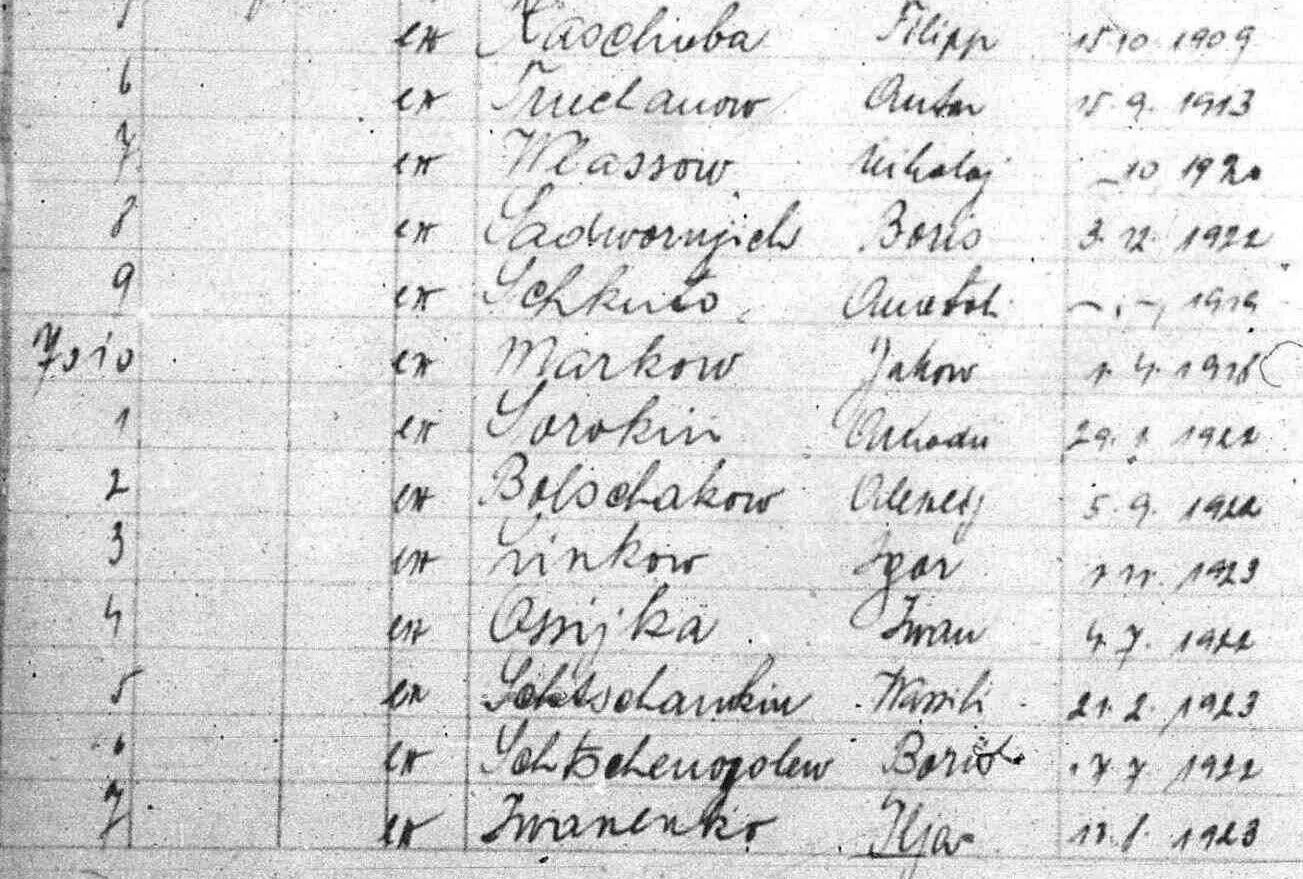 5 er Kaschuba Filipp 15.10.1909
6 er Truchanow Anton 15.9.1913
7 er Wlassow Nikolaj _10 1920
8 er Sadwornyich Boris 3.12.1922
9 er Schkuto Anatoli -.-, 1919
7010 er Markow Jakow 1.4.1918
1 er Sorokin Arkadii 29. 1922
2 er Bolschakow Alexej 5.9.1922
3 er Linkow Igor 1923
4 er Iwan 4.7.1922
5 er Schtschankin Wassili 21.2.1923
6 er Schtschenogolew Boris 7.7.1922
7 er Iwanenko Ilja 1923